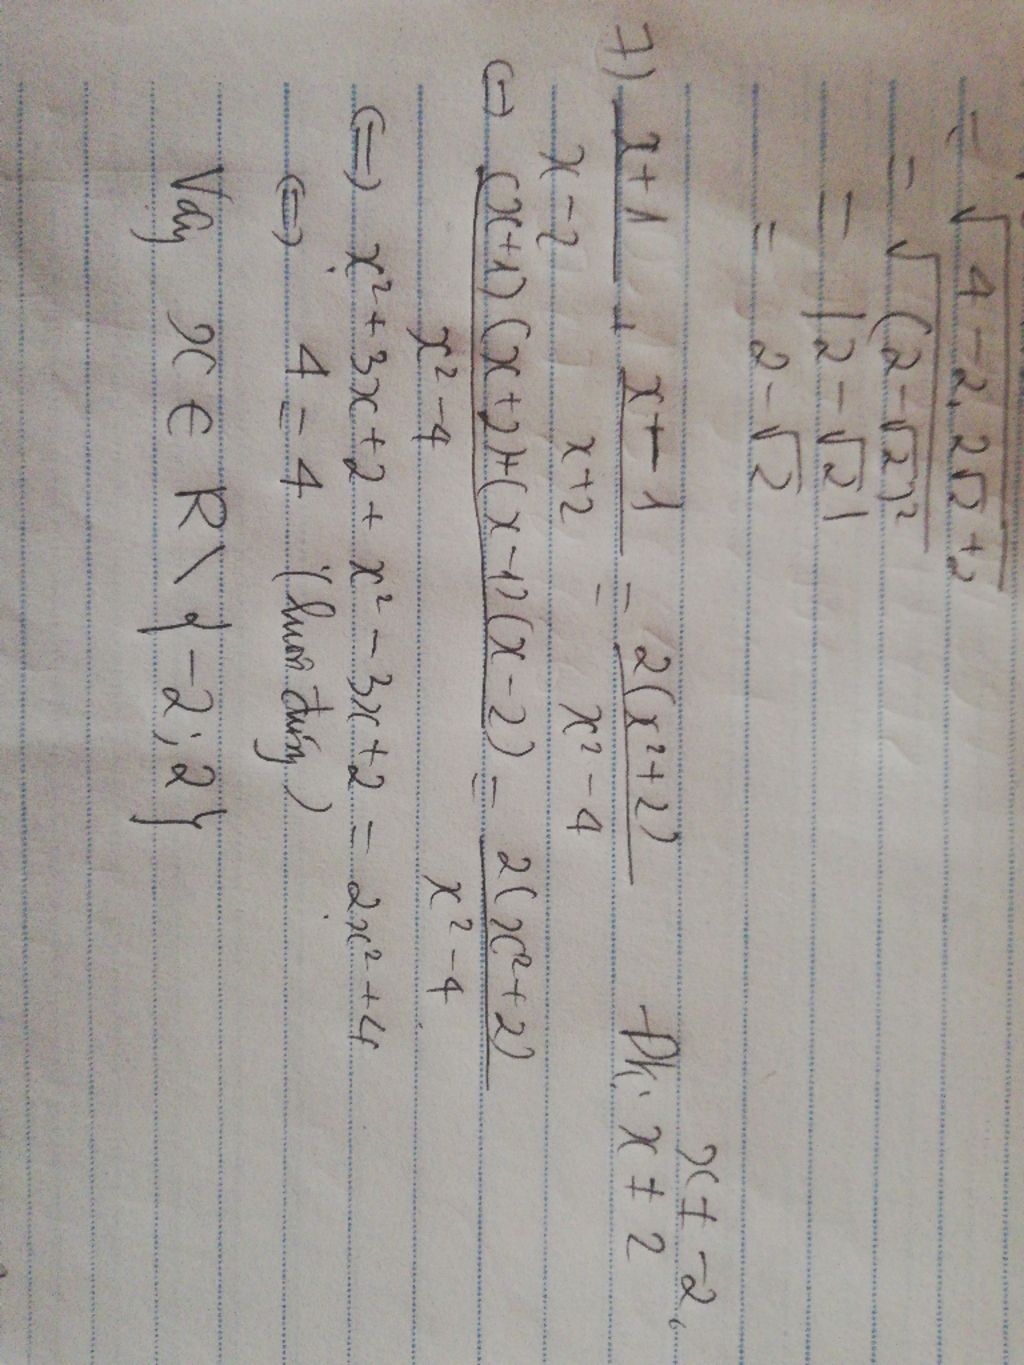 = √(4 - 2.2√2 + 2)
= √((2 - √2)²)
= |2 - √2|
= 2 - √2
x ≠ -2,
7) (x+1)/(x-2) + (x-1)/(x+2) = 2(x²+2)/(x²-4) ĐK: x ≠ 2
⇔ ((x+1)(x+2)+(x-1)(x-2))/(x²-4) = 2(x²+2)/(x²-4)
⇔ x²+3x+2 + x²-3x+2 = 2x²+4
⇔ 4 = 4 (luôn đúng)
Vậy x ∈ R \ {-2; 2}